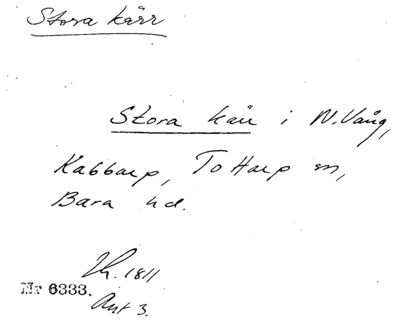 Stora kärr
Stora kärr i N. Vång,
Kabbarp, Tottarp sn,
Bara hd.
Lh. 1811
Nr 6333.
Akt 3.